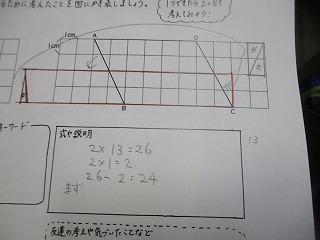 るために考えたことを図にかき表しましょう。
1つできたら2つ目を
考えてみよう！
1cm
1cm
A
D
B
C
キーワード
式や説明
2×13=26
2×1=2
26-2=24
まず
13
友達の考えや気づいたことなど